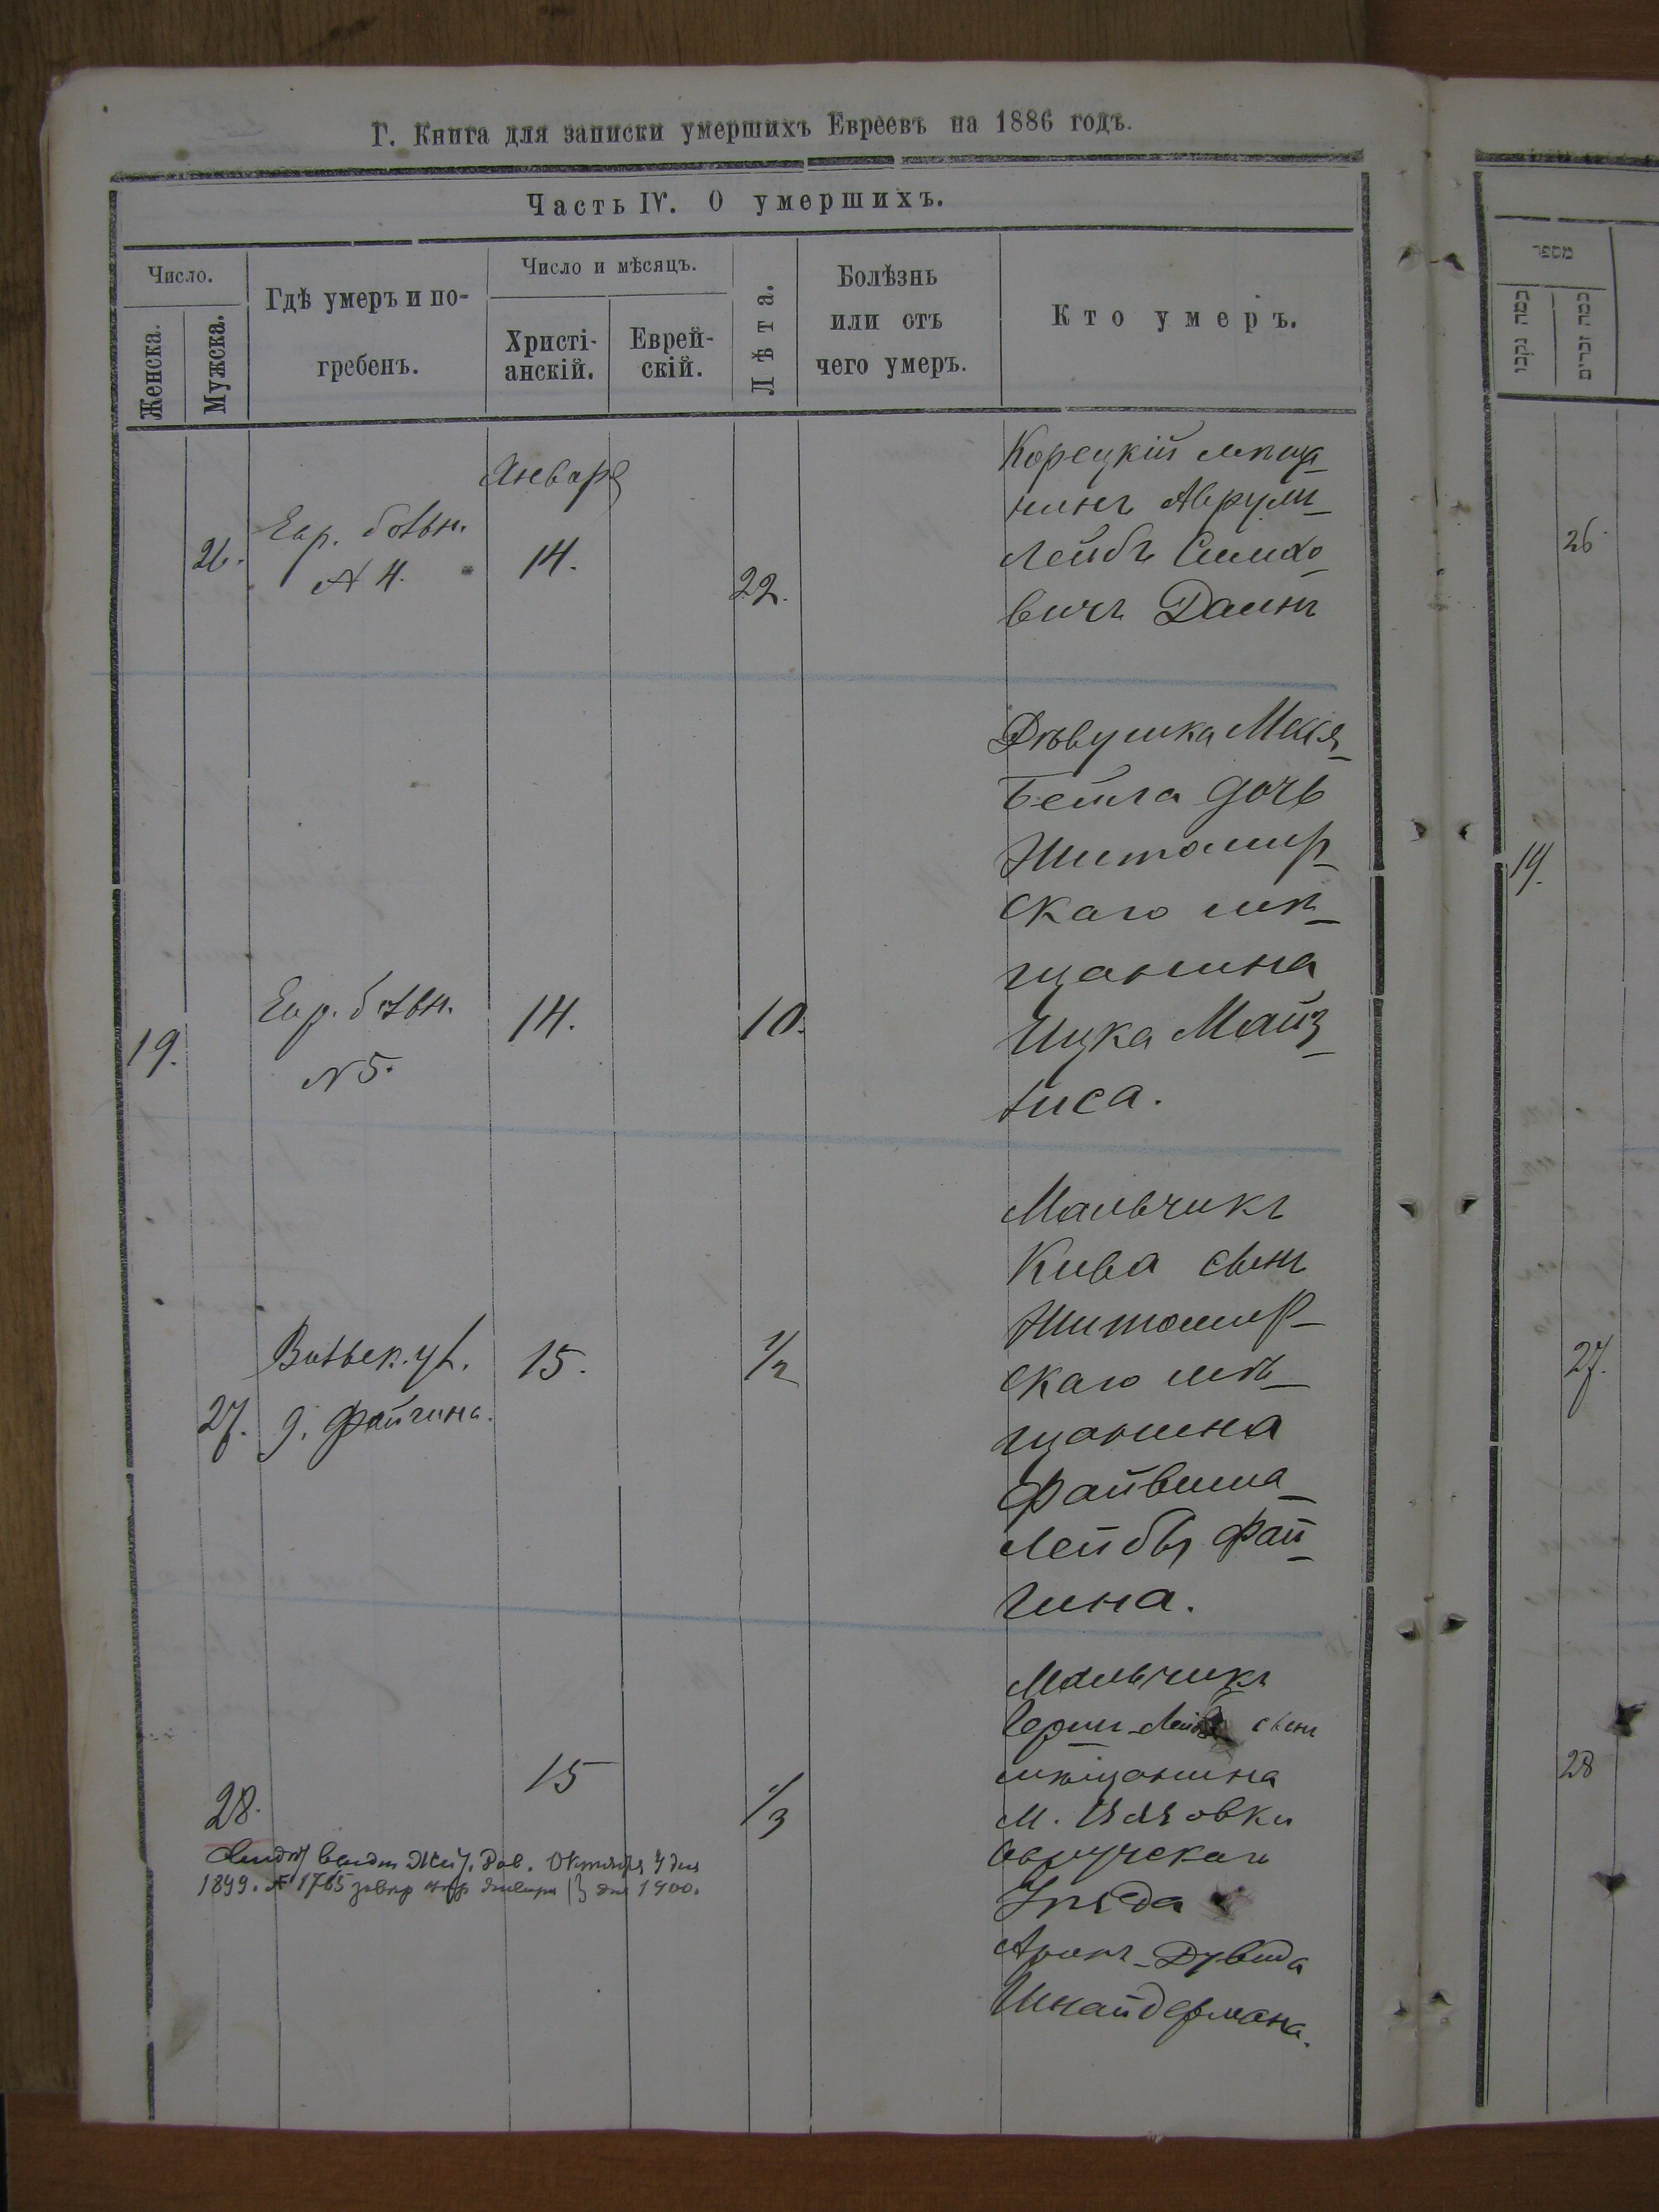 Г. Книга для записки умершихъ Евреевъ на 1886 годъ.
Часть IV. О умершихъ.
Число.
Женска.
Мужска.
Гдѣ умеръ и по-
гребенъ.
Число и мѣсяцъ.
Христі-
анскій.
Еврей-
скій.
Лѣта.
Болѣзнь
или отъ
чего умеръ.
Кто умеръ.
Января
26.
Евр. больн.
№ 4.
14.
22.
Корецкій мѣща-
нинъ Аврумъ-
Лейбъ Симхо-
вичъ Даинъ
19.
Евр. больн.
№ 5.
14.
10.
Дѣвушка Мася-
Бейла дочь
Житомир-
скаго мѣ-
щанина
Ицка Майз-
лиса.
27.
Вильск. ул.
д. Файгина.
15.
1/2
Мальчикъ
Кива сынъ
Житомир-
скаго мѣ-
щанина
Файвиша-
Лейбы Фай-
гина.
28.
15
1/3
Мальчикъ
Гершъ-Лейба сынъ
мѣщанина
м.
Овручскаго
Уѣзда
Аронъ-Дувида
Шнайдермана.
Октября 4 дня
1899. № 1765 13 дня 1900.
מספר
כמה נקבו
כמה זכרים
26
19.
27.
28